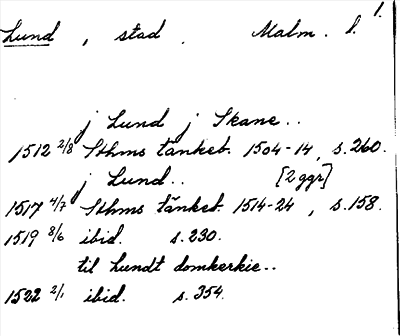 1.
Lund, stad. Malm. l.
j Lund j Skane..
1512 2/8 Sthms tänkeb. 1504-14, s.260.
j Lund.. [2 ggr]
1517 4/7 Sthms tänkeb. 1514-24, s.158.
1519 8/6 ibid. s.230.
til lundt domkerkie..
1522 2/1 ibid. s.354.